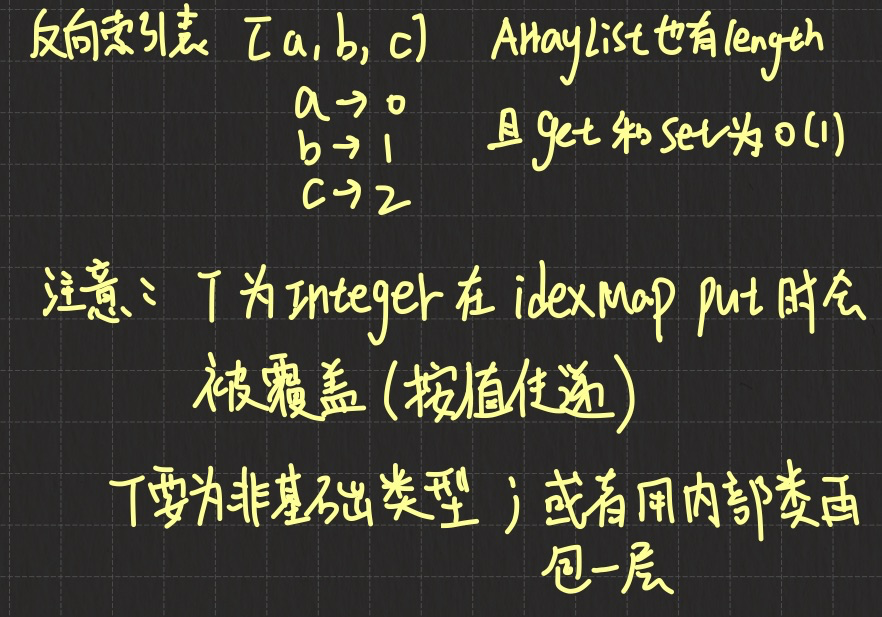 反向索引表 [a, b, c] ArrayList也有length
a→0 且get和set为O(1)
b→1
c→2
注意: T为Integer在idexMap put时会
被覆盖(按值传递)
T要为非基础类型;或者用内部类再
包一层